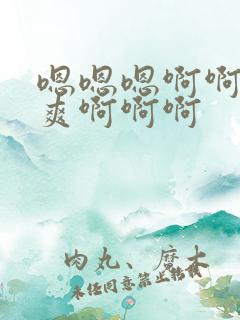 嗯嗯嗯啊啊
爽啊啊啊
肉丸、磨木
未经同意禁止转载